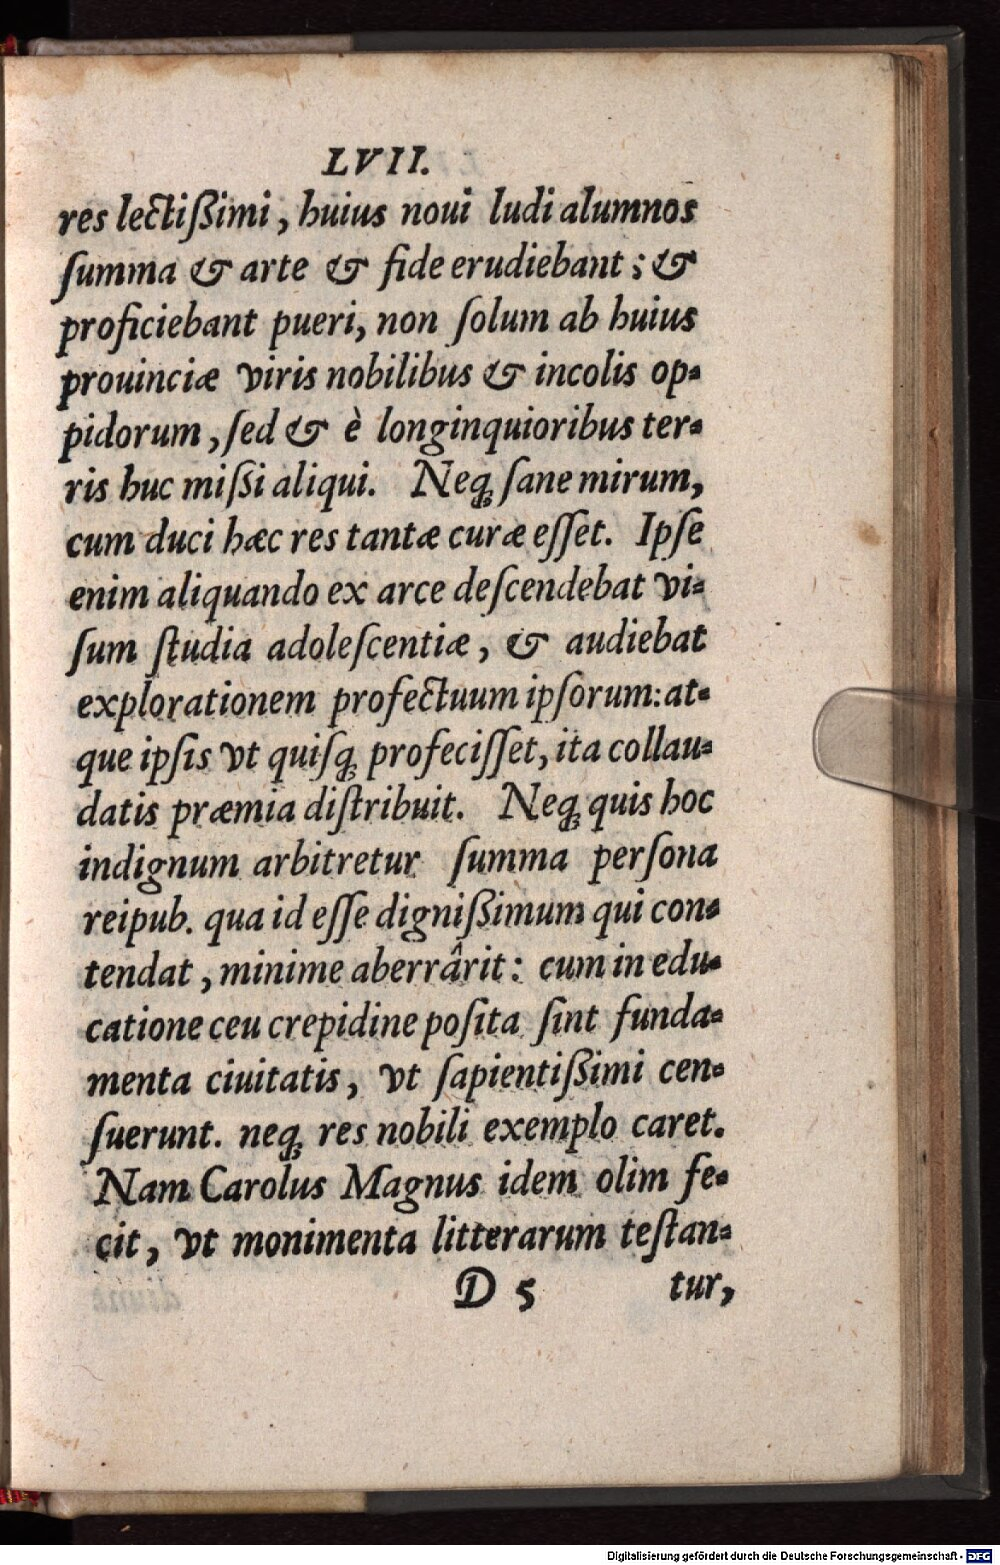 LVII.
res lectißimi, huius noui ludi alumnos
ſumma & arte & fide erudiebant; &
proficiebant pueri, non ſolum ab huius
prouinciæ viris nobilibus & incolis op-
pidorum, ſed & è longinquioribus ter-
ris huc miſſi aliqui. Neqꝫ ſane mirum,
cum duci hæc res tantæ curæ eſſet. Ipſe
enim aliquando ex arce deſcendebat vi-
ſum ſtudia adoleſcentiæ, & audiebat
explorationem profectuum ipſorum: at-
que ipſis vt quiſqꝫ profeciſſet, ita collau-
datis præmia diſtribuit. Neqꝫ quis hoc
indignum arbitretur ſumma perſona
reipub. qua id eſſe dignißimum qui con-
tendat, minime aberrârit: cum in edu-
catione ceu crepidine poſita ſint funda-
menta ciuitatis, vt ſapientißimi cen-
ſuerunt. neqꝫ res nobili exemplo caret.
Nam Carolus Magnus idem olim fe-
cit, vt monimenta litterarum teſtan-
D 5 tur,
Digitalisierung gefördert durch die Deutsche Forschungsgemeinschaft - DFG